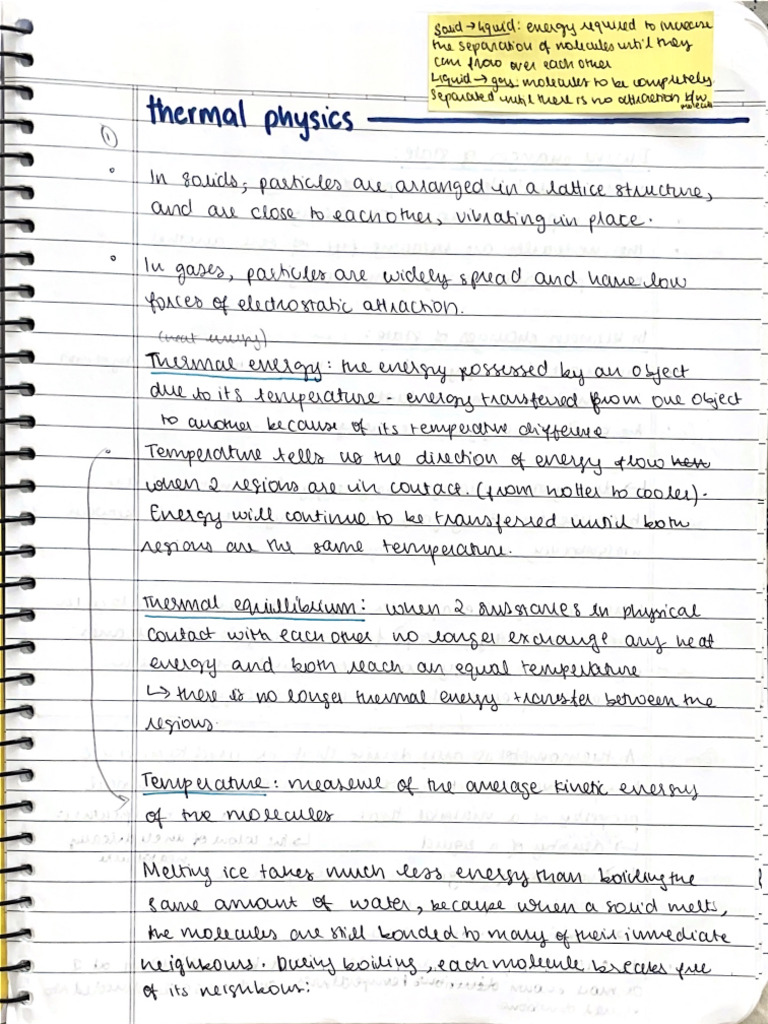 Solid → Liquid: energy required to increase
the separation of molecules until they
can flow over each other
Liquid → gas: molecules to be completely
separated until there is no attraction b/w
molecules
thermal physics
①
• In solids, particles are arranged in a lattice structure,
and are close to each other, vibrating in place.
• In gases, particles are widely spread and have low
forces of electrostatic attraction.
(heat energy)
Thermal energy: the energy possessed by an object
due to its temperature - energy transferred from one object
to another because of its temperative difference
• Temperature tells us the direction of energy flow
when 2 regions are in contact. (from hotter to cooler).
Energy will continue to be transferred until both
regions are the same temperature.
Thermal equillibrium: when 2 substances in physical
contact with each other no longer exchange any heat
energy and both reach an equal temperature
↳ there is no longer thermal energy transfer between the
regions.
Temperature: measure of the average kinetic energy
of the molecules
Melting ice takes much less energy than boiling the
same amount of water, because when a solid melts,
the molecules are still bonded to many of their immediate
neighbours. During boiling, each molecule breaks free
of its neighbours.